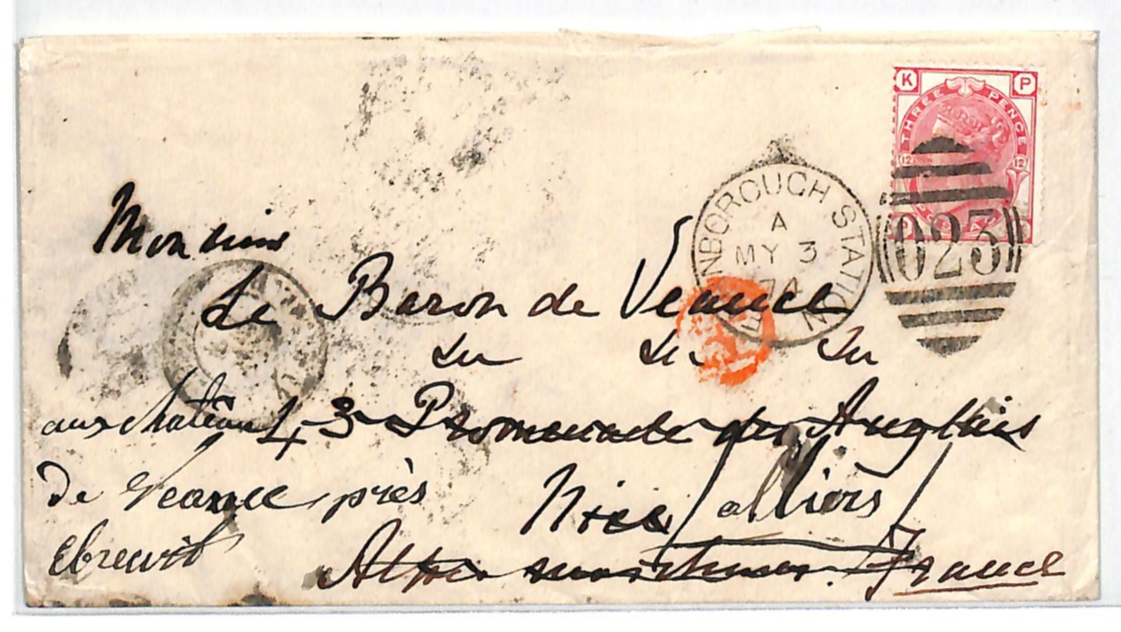 K P
THREE PENCE
12 12
NBOROUGH STATION
A
MY 3
025
Monsieur
Le Baron de Veauce
43 Promenade des Anglais
Nice
Alpes maritimes. France
au château
de Veauce près
Ebreuil
allier